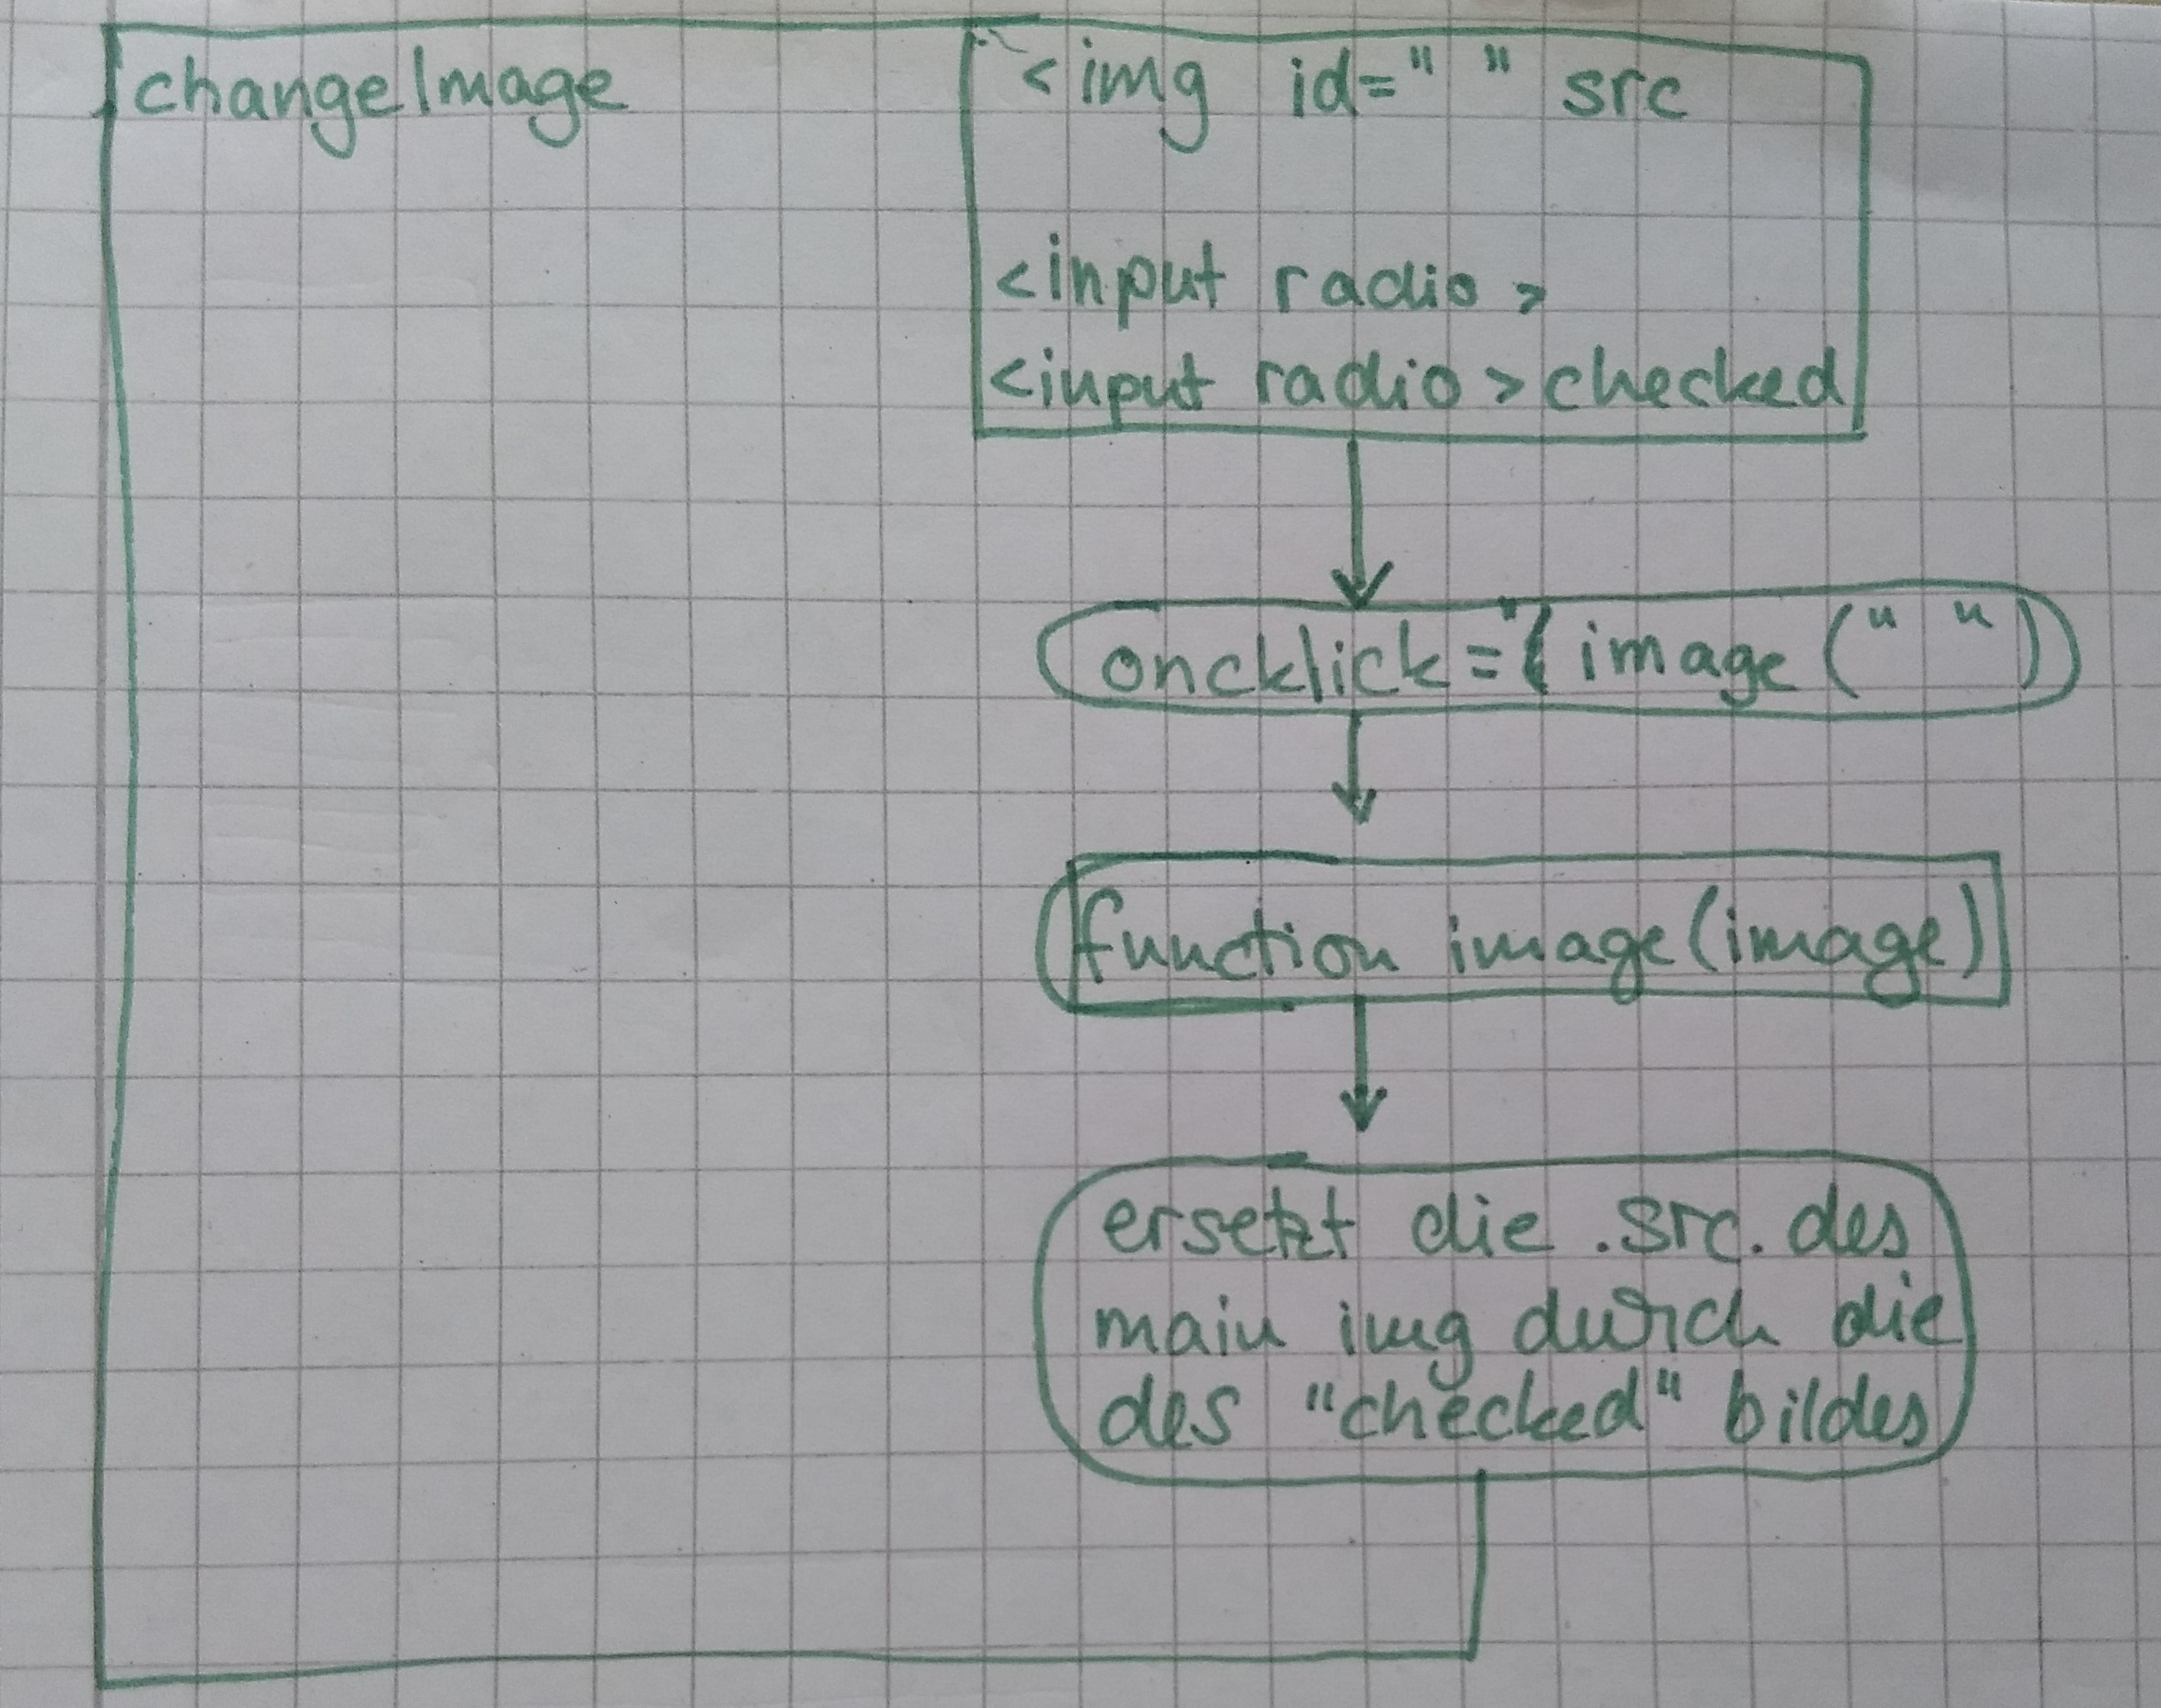 changeImage
<img id=" " src
<input radio >
<input radio > checked
oncklick="{ image (" ")
function image(image)
ersetzt die .src. des
main img durch die
des "checked" bildes